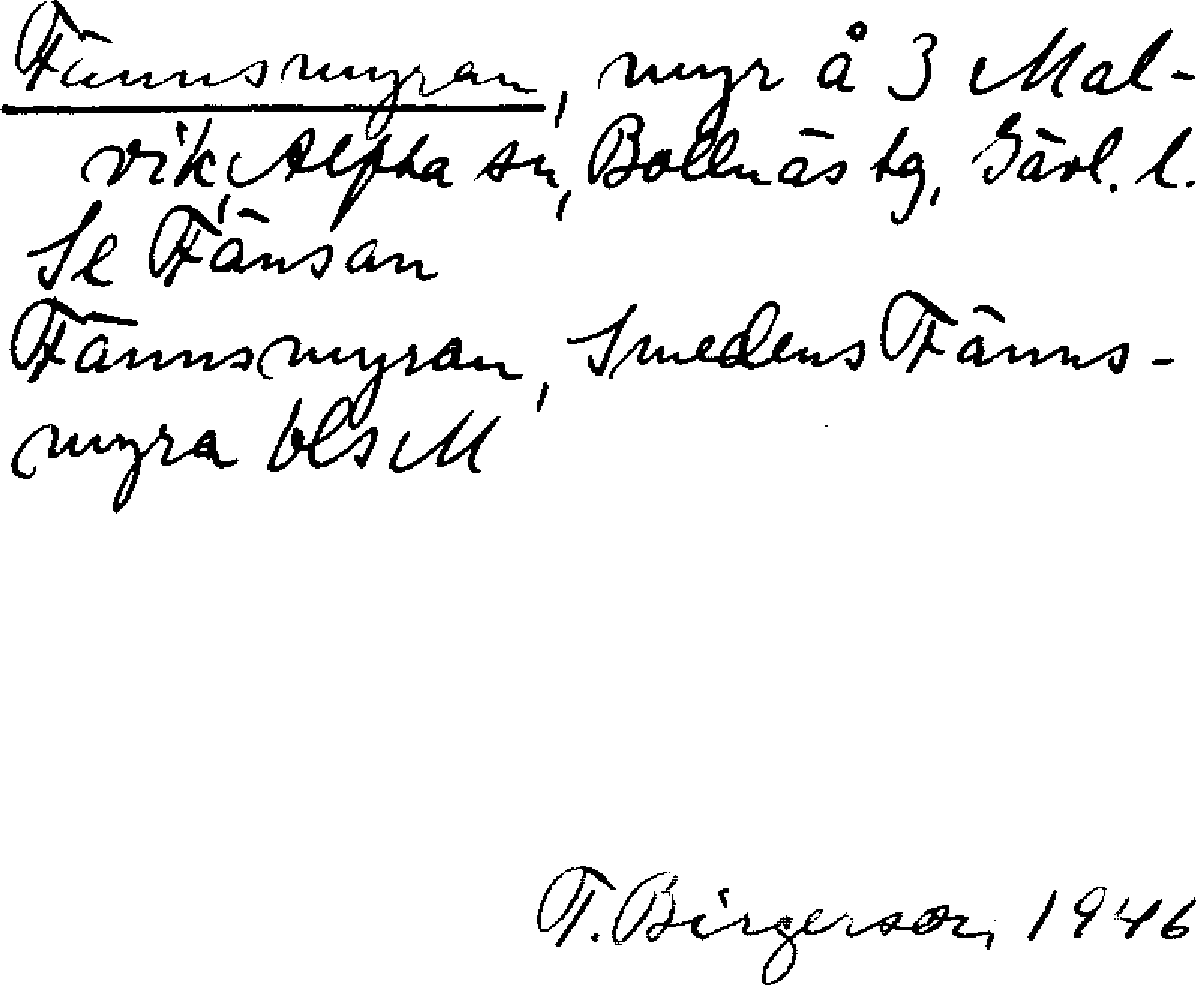 Fännsmyran, myr å 3 Mal-
vik, Alfta sn, Bollnäs tg, Gävl. l.
Se Fänsan
Fännsmyran, Smedens Fänns-
myra
T. Birgerson, 1946